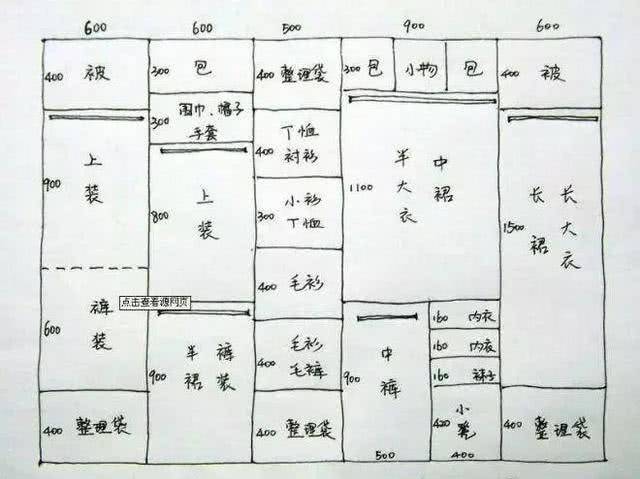 600 600 500 900 600
400 被
300 包
400 整理袋
300 包 小物 包
400 被
300 围巾、帽子
手套
400 T恤
衬衫
900 上装
800 上装
300 小衫
T恤
1100 半大衣 中裙
1500 长裙 长大衣
400 毛衫
点击查看源网页
600 裤装
900 半裙 裤装
400 毛衫
毛裤
900 中裤
160 内衣
160 内衣
160 袜子
420 小凳
400 整理袋
400 整理袋
400 整理袋
500 400